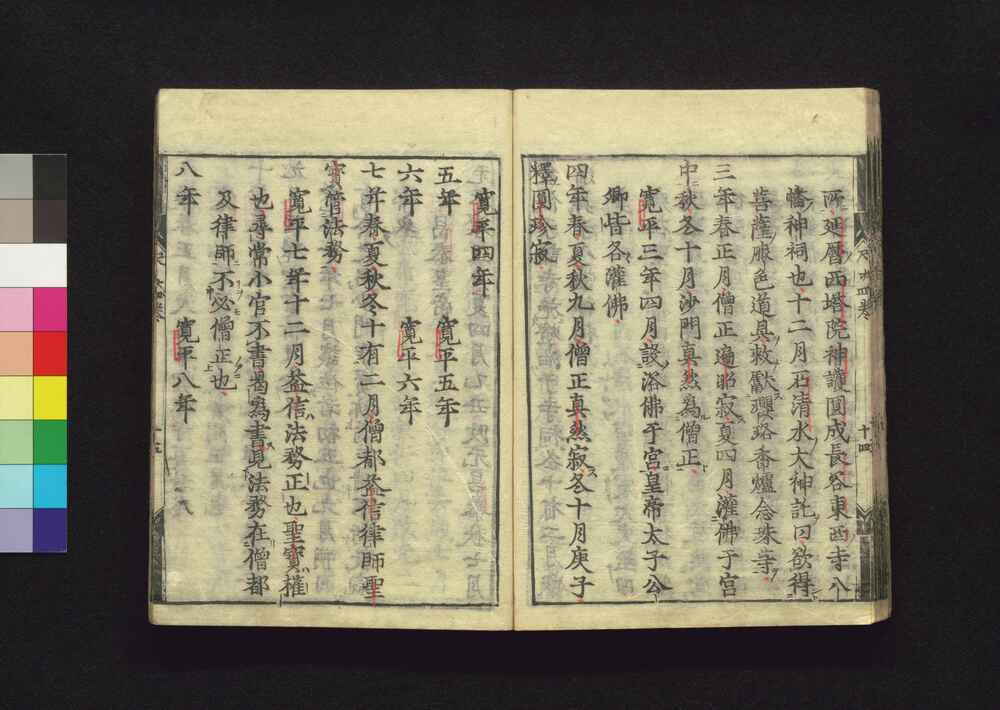 所延暦西塔院神護圓成長谷東西寺八
幡神祠也十二月石清水大神託曰欲得
菩薩服色道具救獸瓔珞香爐念珠等
三年春正月僧正遍昭寂夏四月灌佛于宮
中秋冬十月沙門真然為僧正
寛平三年四月設浴佛于宮皇帝太子公
卿皆各灌佛
四年春夏秋九月僧正真然寂冬十月庚子
釋圓珍寂
寛平四年
五年 寛平五年
六年 寛平六年
七年春夏秋冬十有二月僧都益信律師聖
寳管法務
寛平七年十二月益信法務正也聖寳權
也尋常小官不書曷為書見法務在僧都
及律師不必僧正也
八年 寛平八年